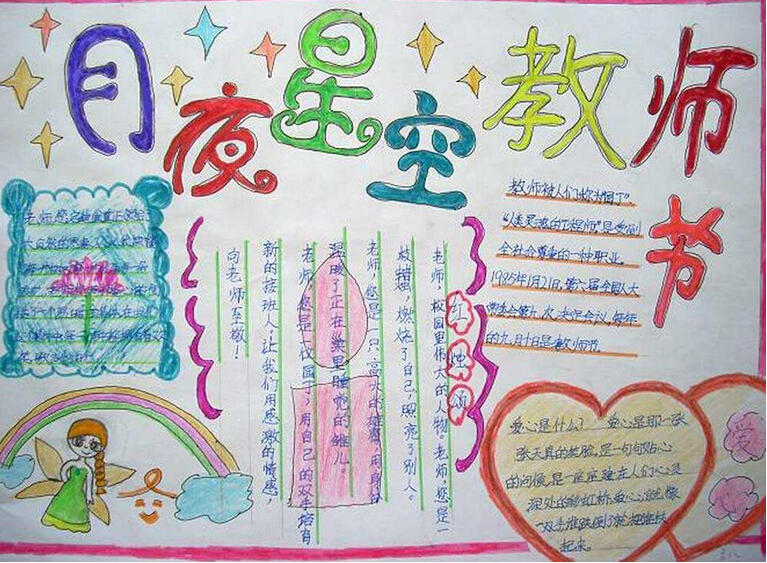 月夜星空教师节
教师被人们称为"园丁"
"人类灵魂的工程师"是受到
全社会尊重的一种职业。
1985年1月21日,第六届全国人大
常委会第九次决定会议,每年
的九月十日是教师节。
红烛颂
老师,校园里伟大的人物。老师,您是一
枝蜡,燃烧了自己,照亮了别人。
老师,您是一只高大的雄鹰,用身体
温暖了正在巢里睡觉的雏儿。
老师,您是一位园丁,用自己的双手培育
新的接班人,让我们用感激的情感,
向老师至敬!
爱心是什么?爱心是那一张
张天真的笑脸,是一句句贴心
的问候,是一座座建在人们心灵
深处的彩虹桥,爱心就像
一双手谁跌倒了就把谁扶
起来。
爱
心